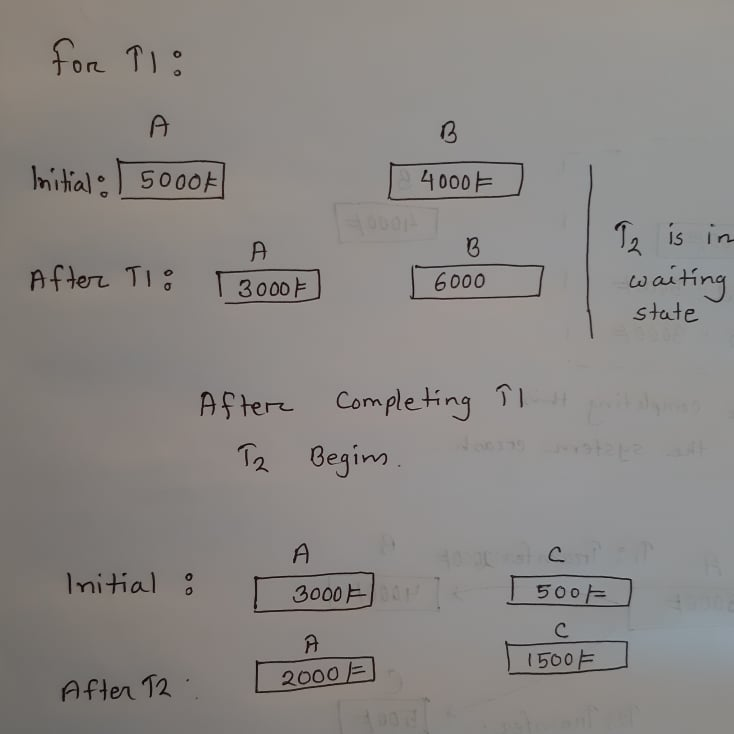 For T1:
A B
Initial: 5000/= 4000/=
A B
After T1: 3000/= 6000
T2 is in
waiting
state
After Completing T1
T2 Begins.
A C
Initial : 3000/= 500/=
A C
After T2 : 2000/= 1500/=